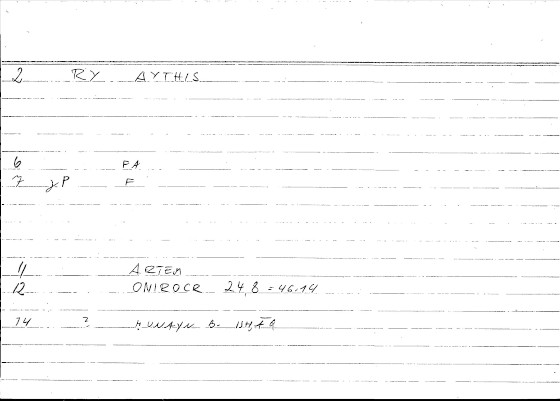 2 RY AYTHIS
6 FA
7 γP F
11 ARTEM
12 ONIROCR 24,8 = 46.14
14 ? ḤUNAYN B. ISḤĀQ